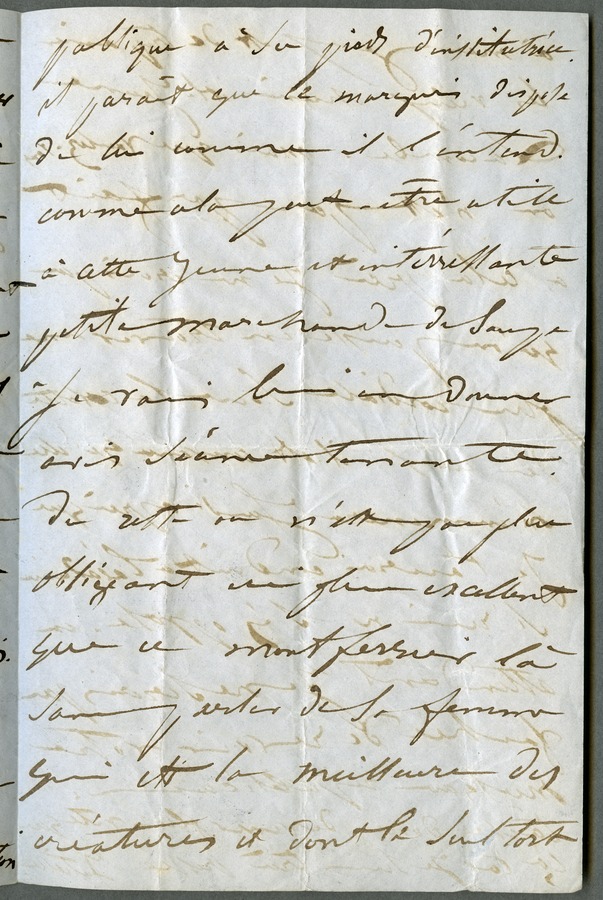 publique à son pied d'institutrice.
il paraît que le marquis dispose
de lui comme il l'entend.
comme cela peut-être utile
à cette jeune et intéressante
petite marchande de
Je vais lui en donner
avis séance tenante.
du reste on n'est pas plus
obligeant ni plus excellent
que ce montferrier là
sans parler de sa femme
qui est la meilleure des
créatures et dont le seul tort